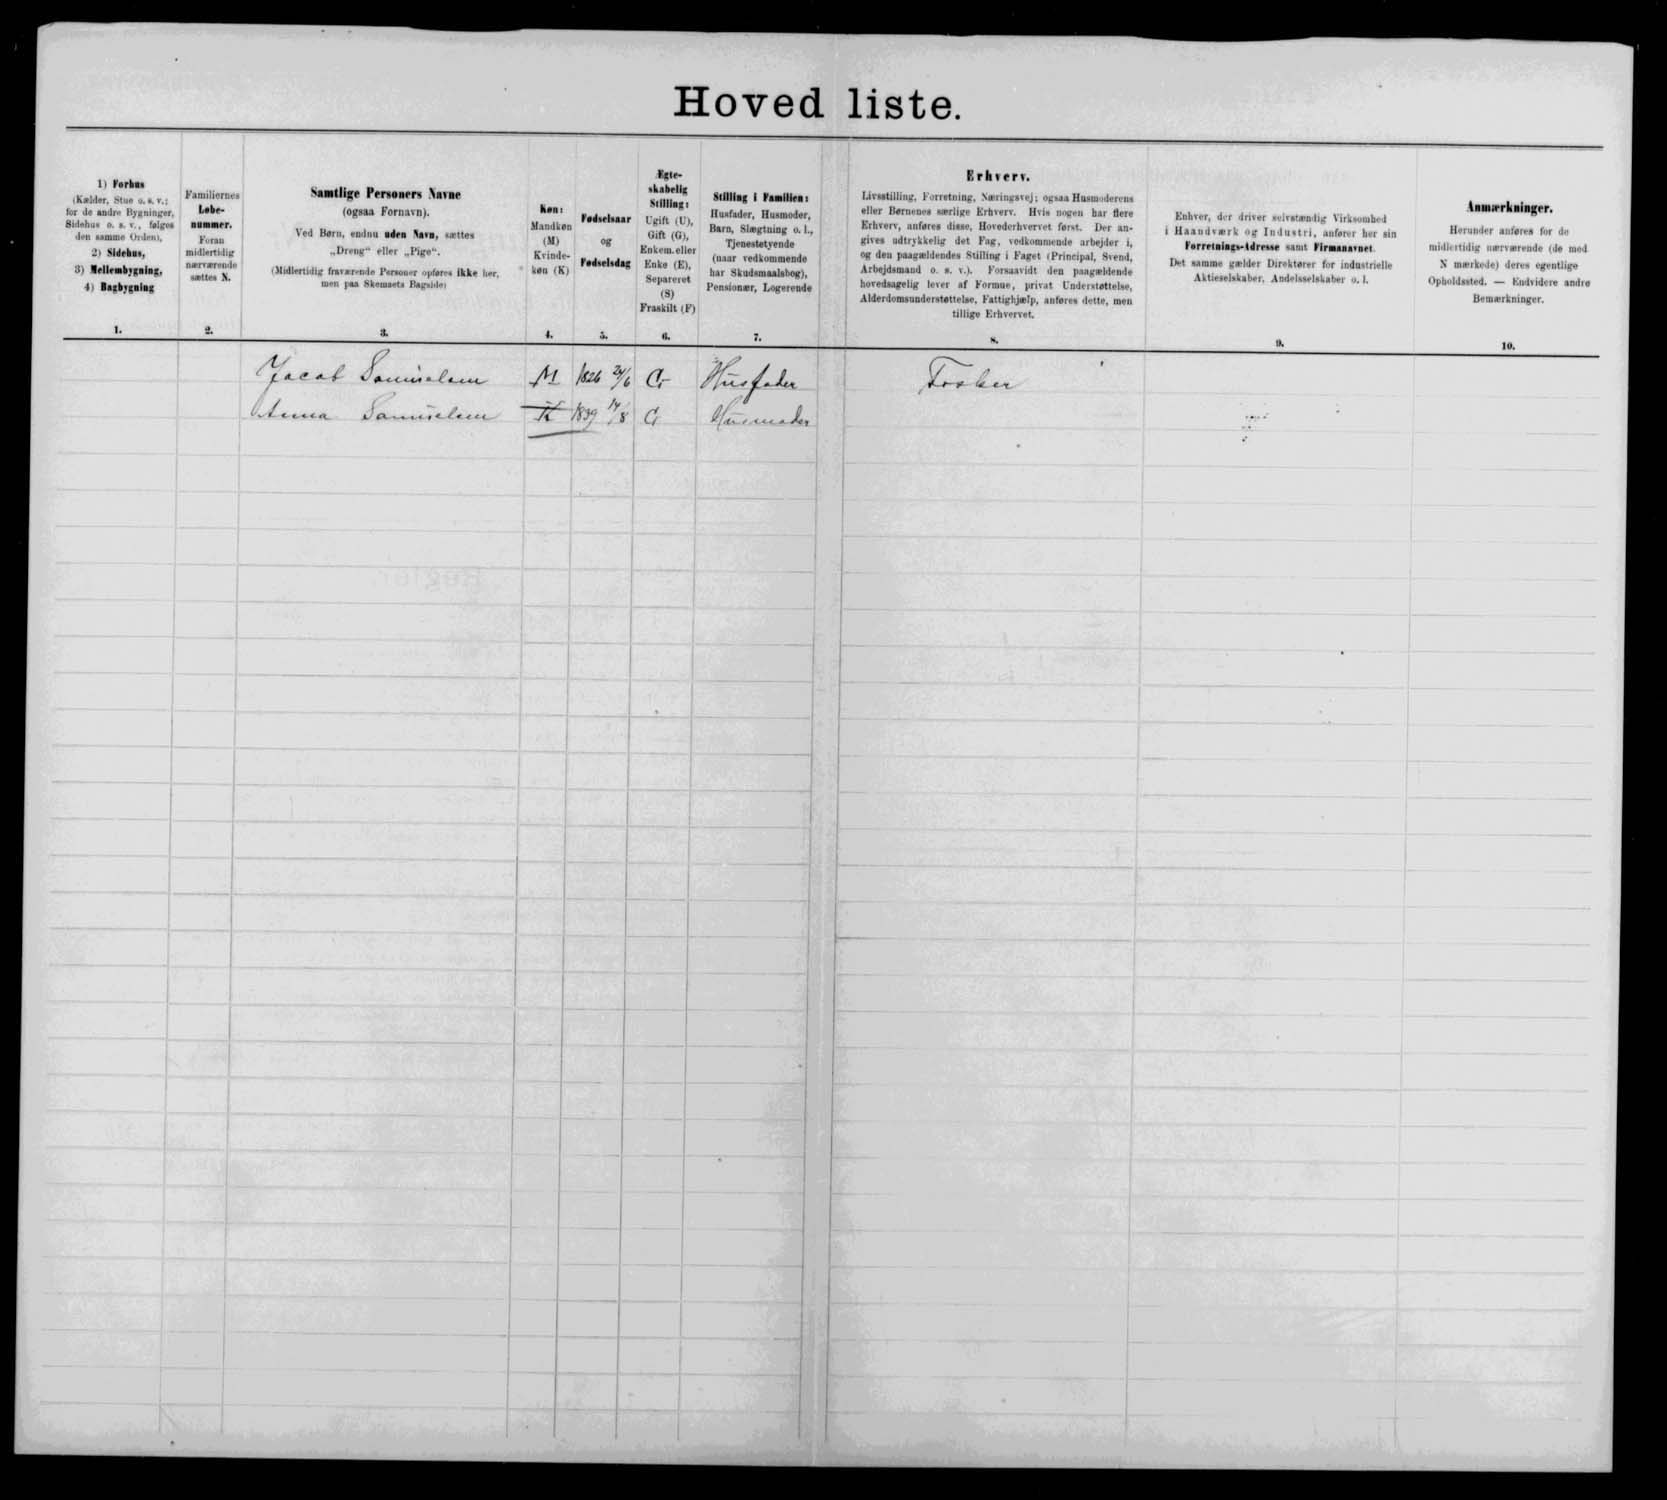 Hovedliste.
1) Forhus
(Kælder, Stue o. s. v.;
for de andre Bygninger,
Sidehus o. s. v., følges
den samme Orden),
2) Sidehus,
3) Mellembygning,
4) Bagbygning
1.
Familiernes
Løbe-
nummer.
Foran
midlertidig
nærværende
sættes N.
2.
Samtlige Personers Navne
(ogsaa Fornavn).
Ved Børn, endnu uden Navn, sættes
„Dreng“ eller „Pige“.
(Midlertidig fraværende Personer opføres ikke her,
men paa Skemaets Bagside)
3.
Køn:
Mandkøn
(M)
Kvinde-
køn (K)
4.
Fødselsaar
og
Fødselsdag
5.
Ægte-
skabelig
Stilling:
Ugift (U),
Gift (G),
Enkem. eller
Enke (E),
Separeret
(S)
Fraskilt (F)
6.
Stilling i Familien:
Husfader, Husmoder,
Barn, Slægtning o. l.,
Tjenestetyende
(naar vedkommende
har Skudsmaalsbog),
Pensionær, Logerende
7.
Erhverv.
Livsstilling, Forretning, Næringsvej; ogsaa Husmoderens
eller Børnenes særlige Erhverv. Hvis nogen har flere
Erhverv, anføres disse, Hovederhvervet først. Der an-
gives udtrykkelig det Fag, vedkommende arbejder i,
og den paagældendes Stilling i Faget (Principal, Svend,
Arbejdsmand o. s. v.). Forsaavidt den paagældende
hovedsagelig lever af Formue, privat Understøttelse,
Alderdomsunderstøttelse, Fattighjælp, anføres dette, men
tillige Erhvervet.
8.
Enhver, der driver selvstændig Virksomhed
i Haandværk og Industri, anfører her sin
Forretnings-Adresse samt Firmanavnet.
Det samme gælder Direktører for industrielle
Aktieselskaber, Andelsselskaber o. l.
9.
Anmærkninger.
Herunder anføres for de
midlertidig nærværende (de med
N mærkede) deres egentlige
Opholdssted. — Endvidere andre
Bemærkninger.
10.
Jacob Samuelsen M 1826 24/6 G Husfader Fisker
Anna Samuelsen K 1839 14/8 G Husmoder